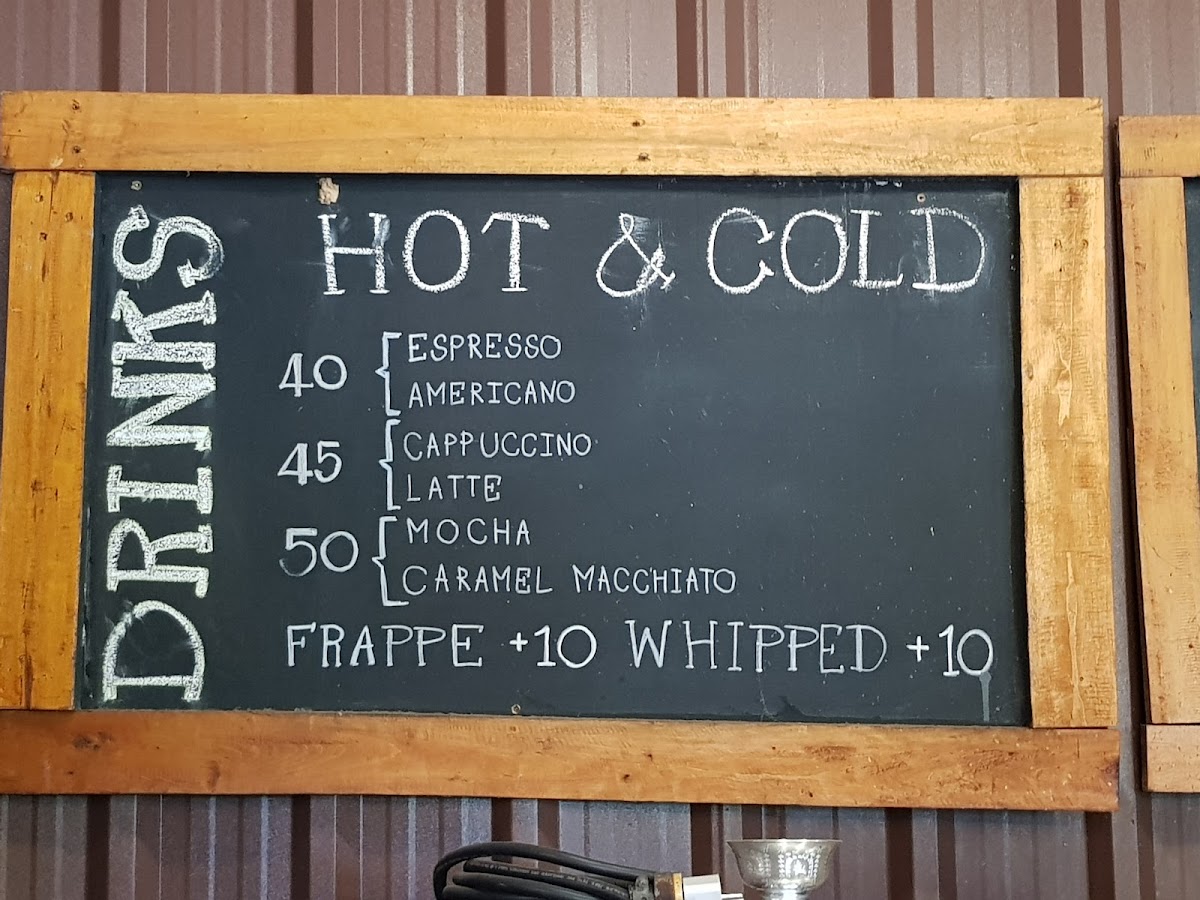 DRINKS
HOT & COLD
40 ESPRESSO
AMERICANO
45 CAPPUCCINO
LATTE
50 MOCHA
CARAMEL MACCHIATO
FRAPPE +10 WHIPPED +10